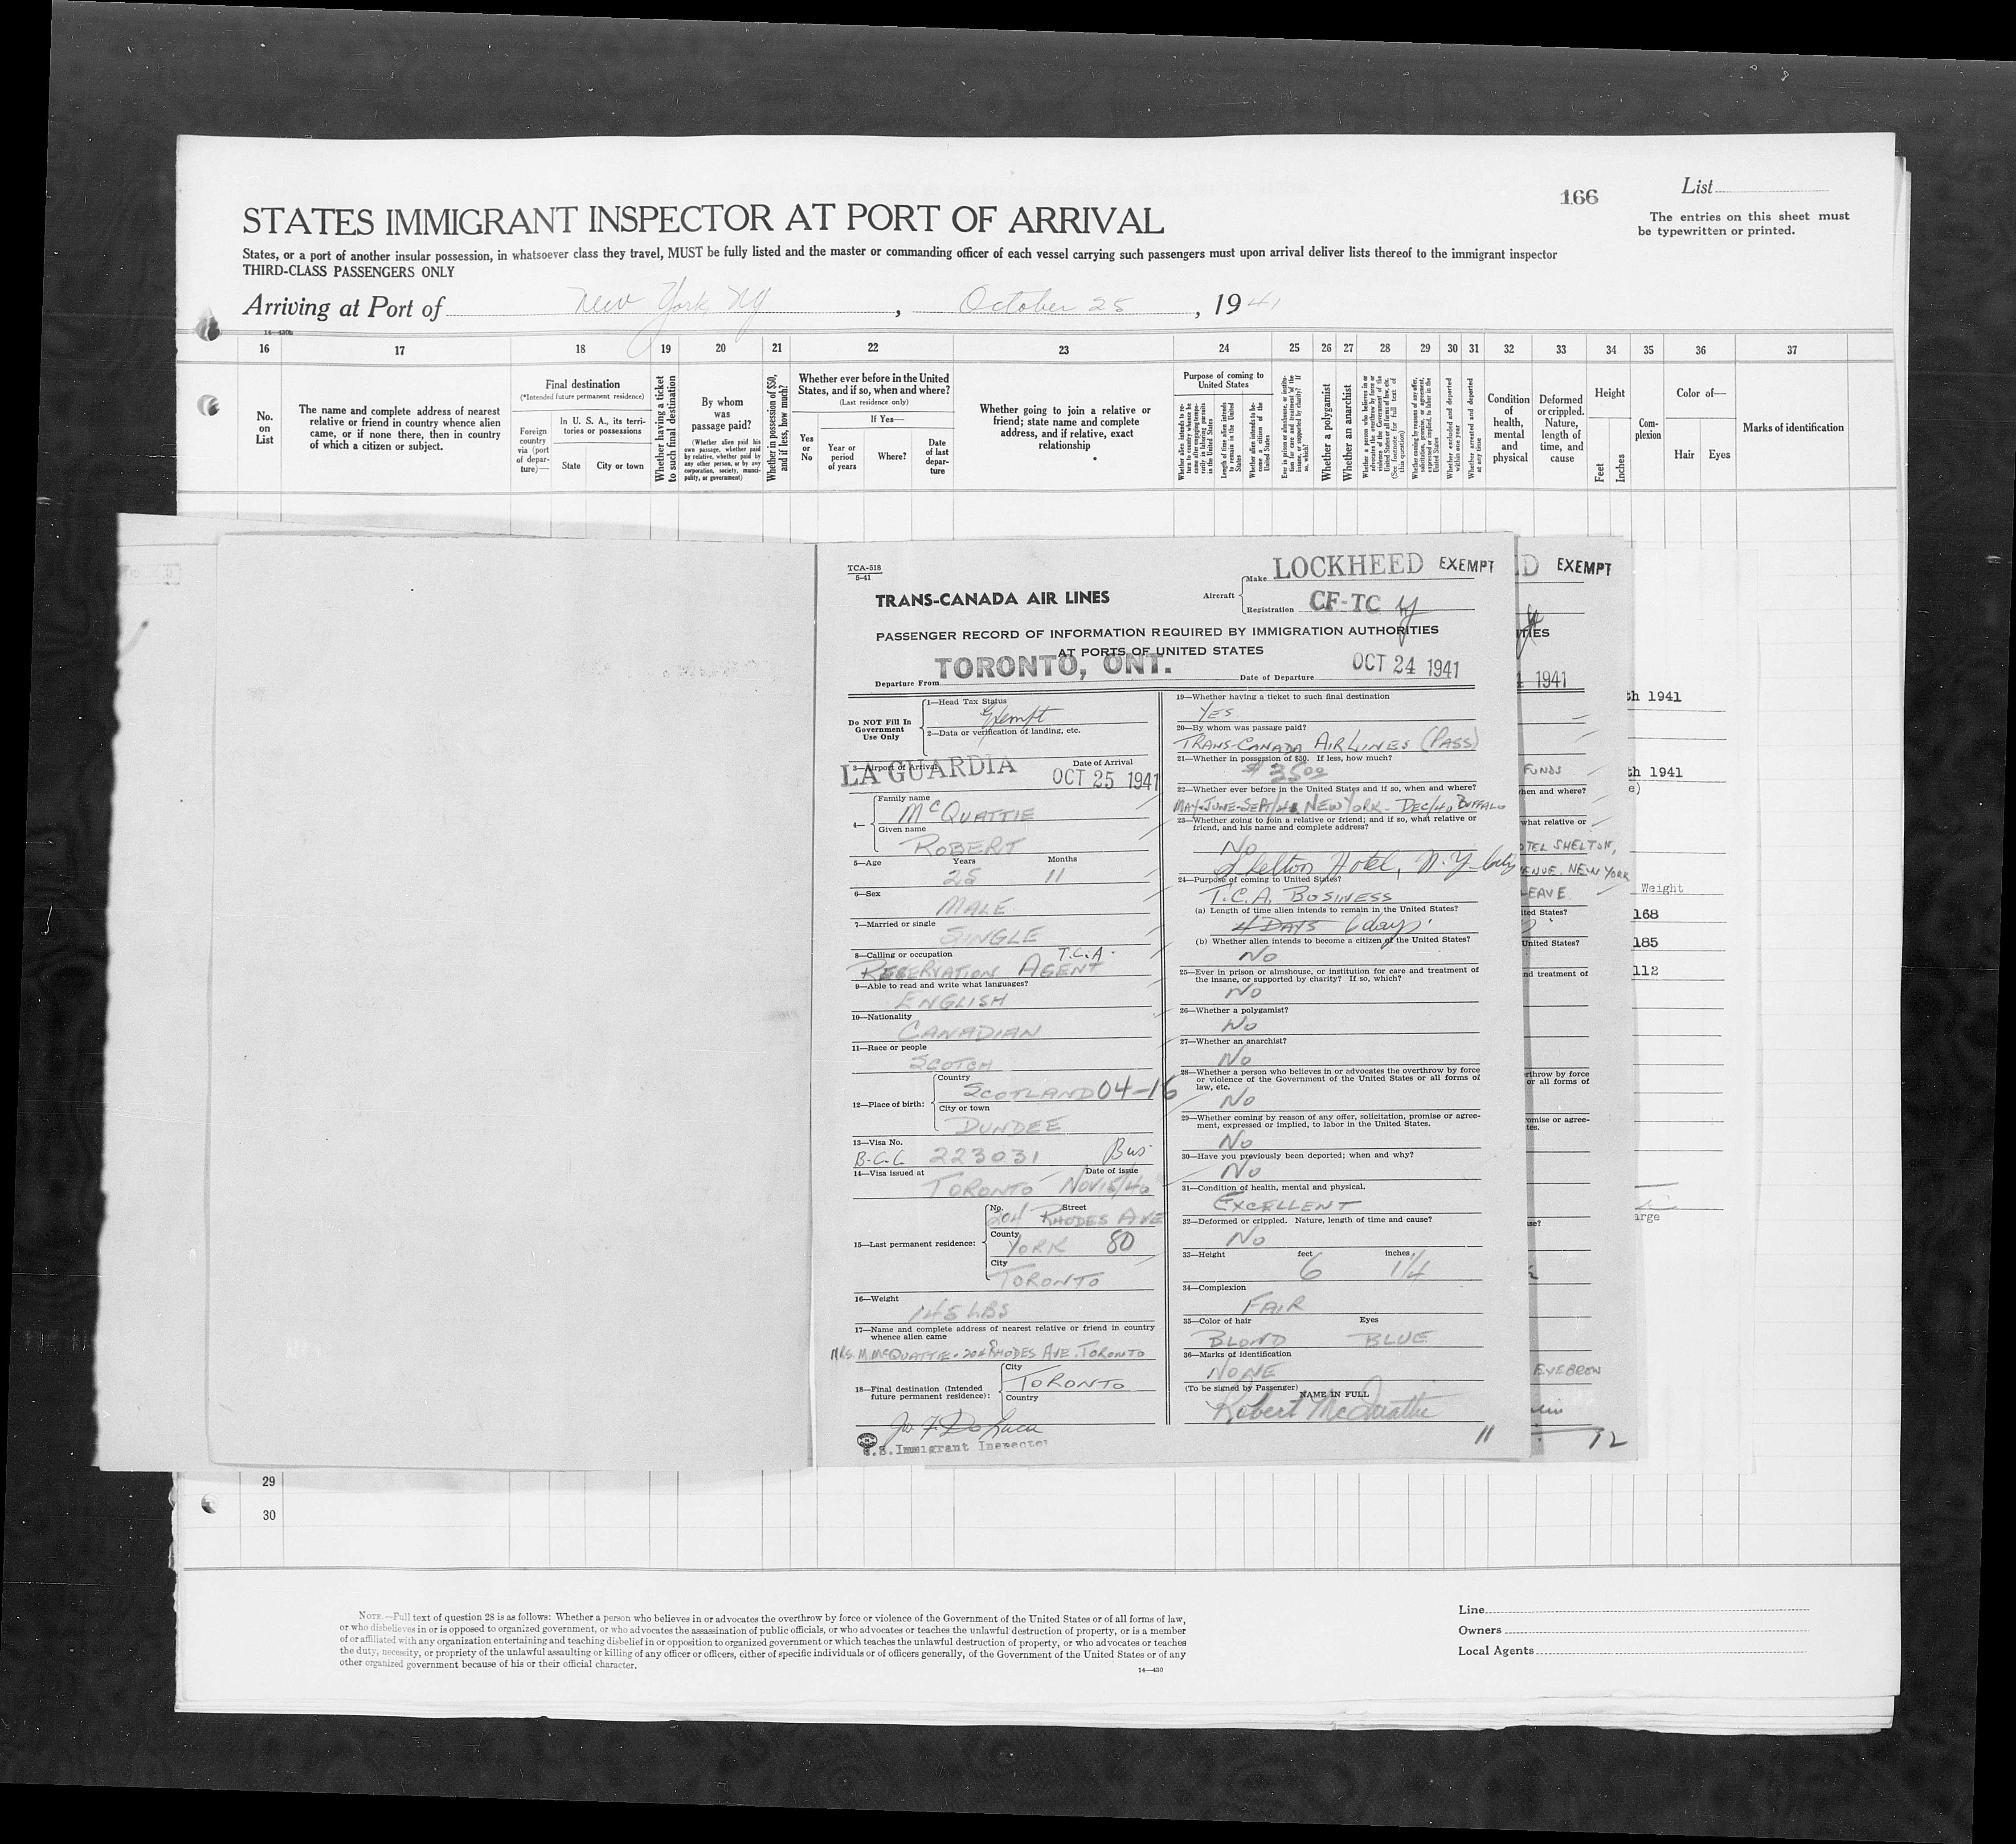 166
List
The entries on this sheet must
be typewritten or printed.
STATES IMMIGRANT INSPECTOR AT PORT OF ARRIVAL
States, or a port of another insular possession, in whatsoever class they travel, MUST be fully listed and the master or commanding officer of each vessel carrying such passengers must upon arrival deliver lists thereof to the immigrant inspector
THIRD-CLASS PASSENGERS ONLY
Arriving at Port of New York NY, October 25, 1941
16 17 18 19 20 21 22 23 24 25 26 27 28 29 30 31 32 33 34 35 36 37
No.
on
List
The name and complete address of nearest
relative or friend in country whence alien
came, or if none there, then in country
of which a citizen or subject.
Final destination
(*Intended future permanent residence)
Foreign
country
via (port
of depar-
ture)—
In U. S. A., its terri-
tories or possessions
State
City or town
Whether having a ticket
to such final destination
By whom
was
passage paid?
(Whether alien paid his
own passage, whether paid
by relative, whether paid by
any other person, or by any
corporation, society, munici-
pality, or government)
Whether in possession of $50,
and if less, how much?
Whether ever before in the United
States, and if so, when and where?
(Last residence only)
Yes
or
No
If Yes—
Year or
period
of years
Where?
Date
of last
depar-
ture
Whether going to join a relative or
friend; state name and complete
address, and if relative, exact
relationship
Purpose of coming to
United States
Length of time alien intends
to remain in the United
States
Whether alien intends to be-
come a citizen of the
United States
Whether a polygamist
Whether an anarchist
Whether excluded and deported
within one year
Whether arrested and deported
at any time
Condition
of
health,
mental
and
physical
Deformed
or crippled.
Nature,
length of
time, and
cause
Height
Feet
Inches
Com-
plexion
Color of—
Hair
Eyes
Marks of identification
TCA-518
5-41
TRANS-CANADA AIR LINES
Aircraft
Make LOCKHEED EXEMPT
Registration CF-TC y
PASSENGER RECORD OF INFORMATION REQUIRED BY IMMIGRATION AUTHORITIES
AT PORTS OF UNITED STATES
Departure From TORONTO, ONT.
Date of Departure OCT 24 1941
Do NOT Fill In
Government
Use Only
1—Head Tax Status
Exempt
2—Data or verification of landing, etc.
3—Airport of Arrival
LA GUARDIA
Date of Arrival
OCT 25 1941
4—
Family name
McQUATTIE
Given name
ROBERT
5—Age Years Months
25 11
6—Sex
MALE
7—Married or single
SINGLE
8—Calling or occupation T.C.A.
RESERVATION AGENT
9—Able to read and write what languages?
ENGLISH
10—Nationality
CANADIAN
11—Race or people
SCOTCH
12—Place of birth:
Country
SCOTLAND 04-16
City or town
DUNDEE
13—Visa No.
B.C.C. 223031 Bus
14—Visa issued at Date of issue
TORONTO NOV 15/40
15—Last permanent residence:
No. Street
204 RHODES AVE
County
YORK 80
City
TORONTO
16—Weight
145 LBS
17—Name and complete address of nearest relative or friend in country
whence alien came
MRS. M. McQUATTIE - 204 RHODES AVE. TORONTO
18—Final destination (Intended
future permanent residence):
City
TORONTO
Country
U.S. Immigrant Inspector
19—Whether having a ticket to such final destination
YES
20—By whom was passage paid?
TRANS-CANADA AIR LINES (PASS)
21—Whether in possession of $50. If less, how much?
$ 35.00
22—Whether ever before in the United States and if so, when and where?
MAY-JUNE-SEPT/41 NEW YORK - DEC/40 BUFFALO
23—Whether going to join a relative or friend; and if so, what relative or
friend, and his name and complete address?
No
Shelton Hotel, N.Y. City
24—Purpose of coming to United States?
T.C.A. BUSINESS
(a) Length of time alien intends to remain in the United States?
4 DAYS 6 days
(b) Whether alien intends to become a citizen of the United States?
No
25—Ever in prison or almshouse, or institution for care and treatment of
the insane, or supported by charity? If so, which?
No
26—Whether a polygamist?
No
27—Whether an anarchist?
No
28—Whether a person who believes in or advocates the overthrow by force
or violence of the Government of the United States or all forms of
law, etc.
No
29—Whether coming by reason of any offer, solicitation, promise or agree-
ment, expressed or implied, to labor in the United States.
No
30—Have you previously been deported; when and why?
No
31—Condition of health, mental and physical.
EXCELLENT
32—Deformed or crippled. Nature, length of time and cause?
No
33—Height feet inches
6 1/4
34—Complexion
FAIR
35—Color of hair Eyes
BLOND BLUE
36—Marks of identification
NONE
(To be signed by Passenger) NAME IN FULL
Robert McQuattie
11
D EXEMPT
1941
FUNDS
hen and where?
what relative or
OTEL SHELTON,
ENUE. NEW YORK
LEAVE
ited States?
United States?
nd treatment of
rthrow by force
or all forms of
omise or agree-
tes.
use?
EYEBROW
12
th 1941
th 1941
e)
Weight
168
185
112
arge
29
30
NOTE.—Full text of question 28 is as follows: Whether a person who believes in or advocates the overthrow by force or violence of the Government of the United States or of all forms of law,
or who disbelieves in or is opposed to organized government, or who advocates the assassination of public officials, or who advocates or teaches the unlawful destruction of property, or is a member
of or affiliated with any organization entertaining and teaching disbelief in or opposition to organized government or which teaches the unlawful destruction of property, or who advocates or teaches
the duty, necessity, or propriety of the unlawful assaulting or killing of any officer or officers, either of specific individuals or of officers generally, of the Government of the United States or of any
other organized government because of his or their official character.
14—430
Line
Owners
Local Agents